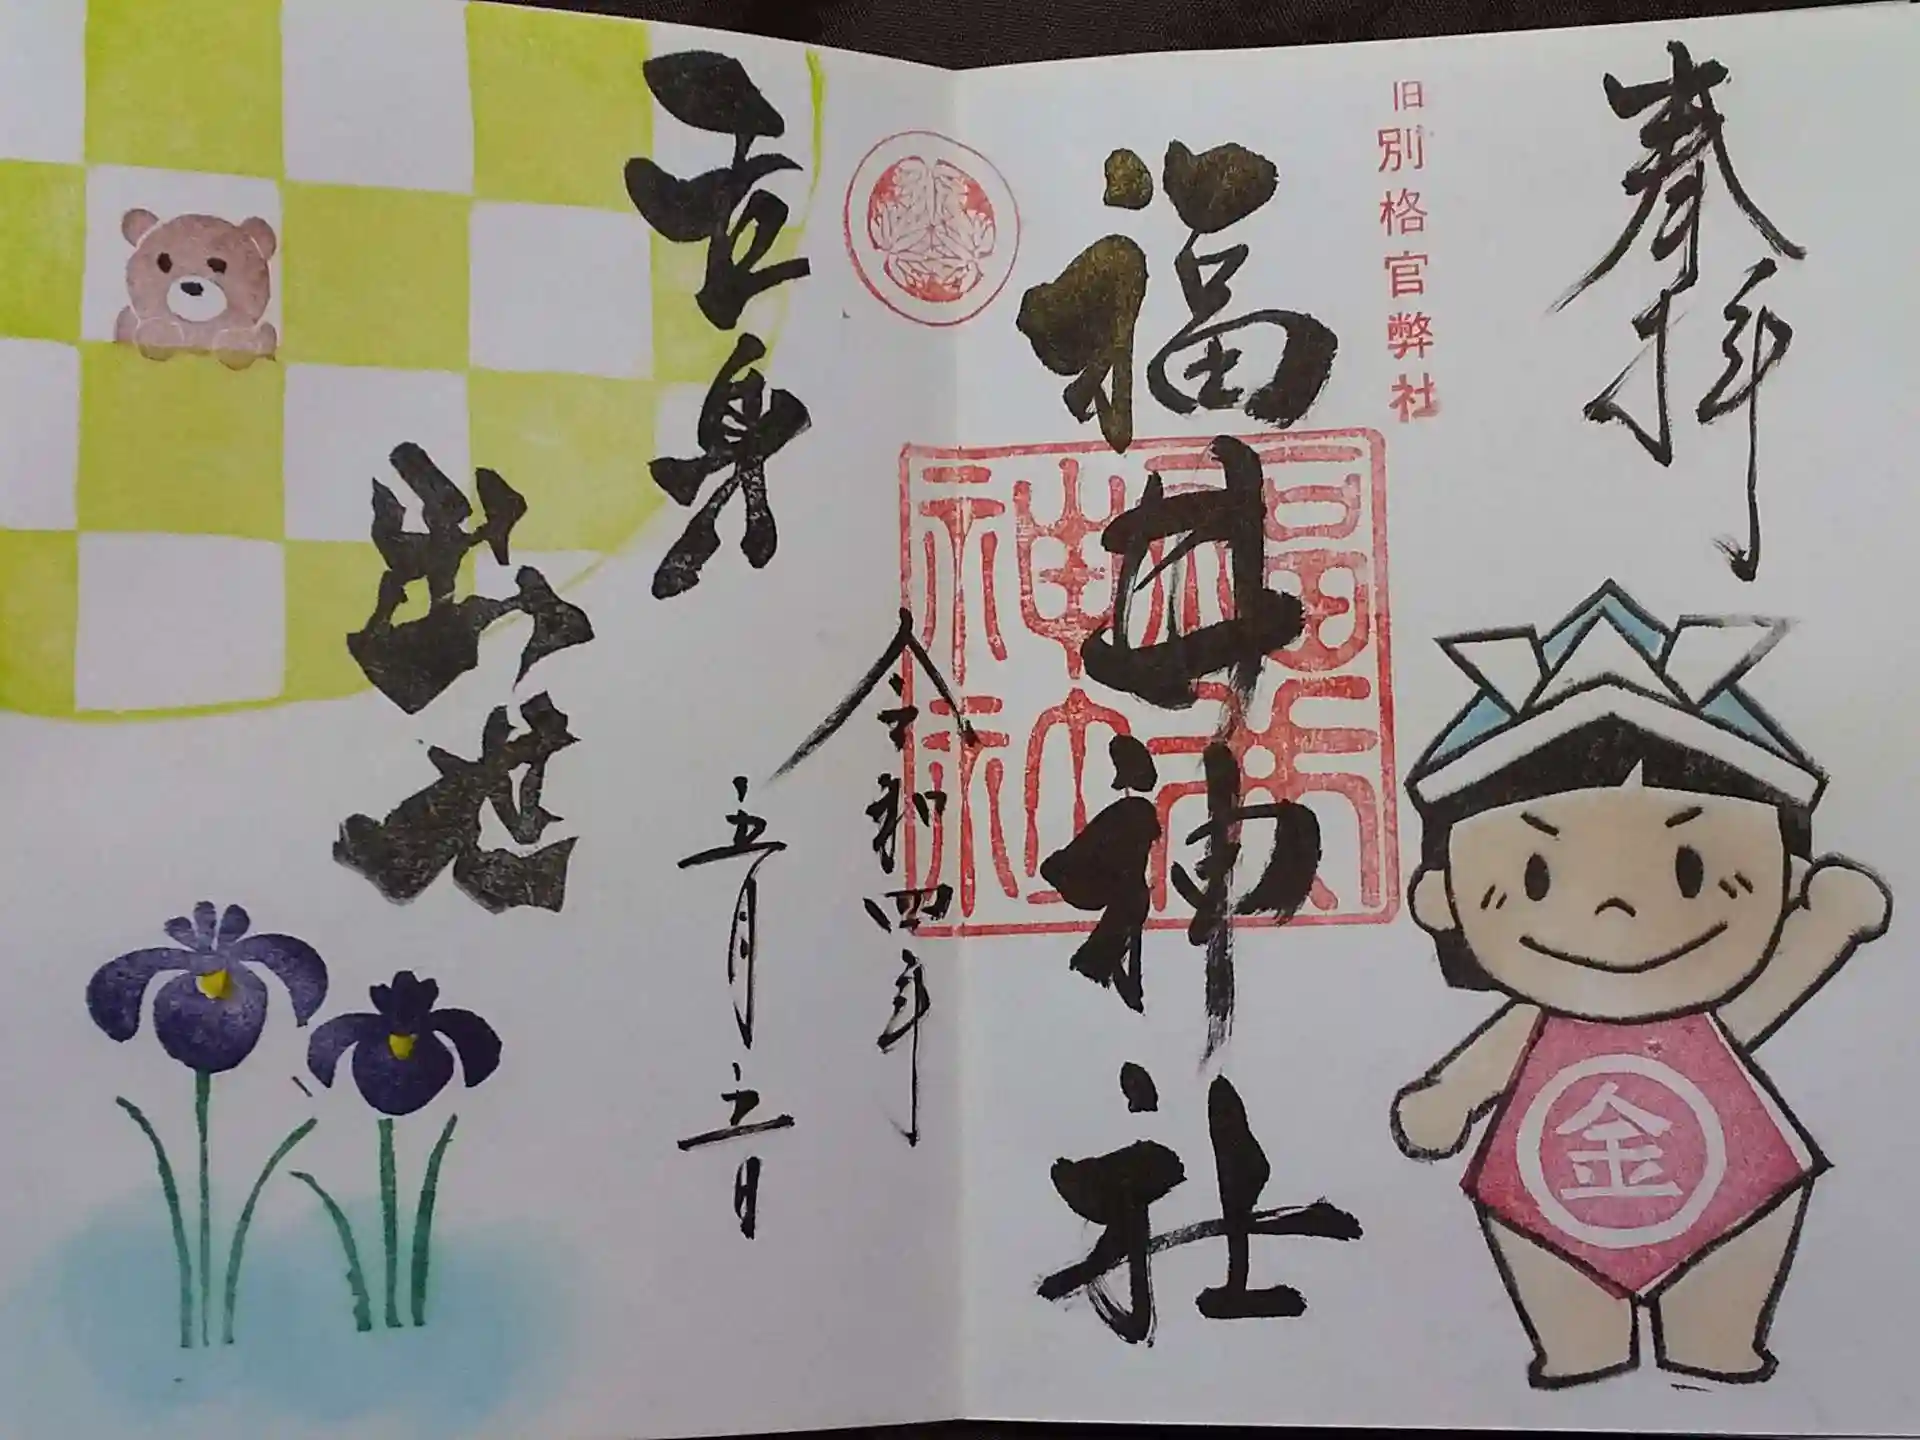 奉拝
旧別格官弊社
福井神社
福井神社
令和四年
五月五日
立身
出世
金